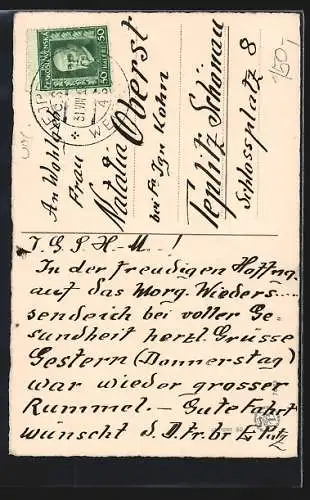 50 ČESKOSLOVENSKÁ 50
31.VIII
An Wohlgeb.
Frau
Natalia Oberst
bei Fr Ign Kohn
Teplitz Schönau
Schlossplatz 8
150,-
J. G. S. H.-M. !
In der freudigen Hoffng.
auf das Morg. Wieders....
sende ich bei voller Ge=
sundheit herzl. Grüsse
Gestern (Donnerstag)
war wieder grosser
Rummel. — Gute Fahrt
wünscht d. D.tr.br